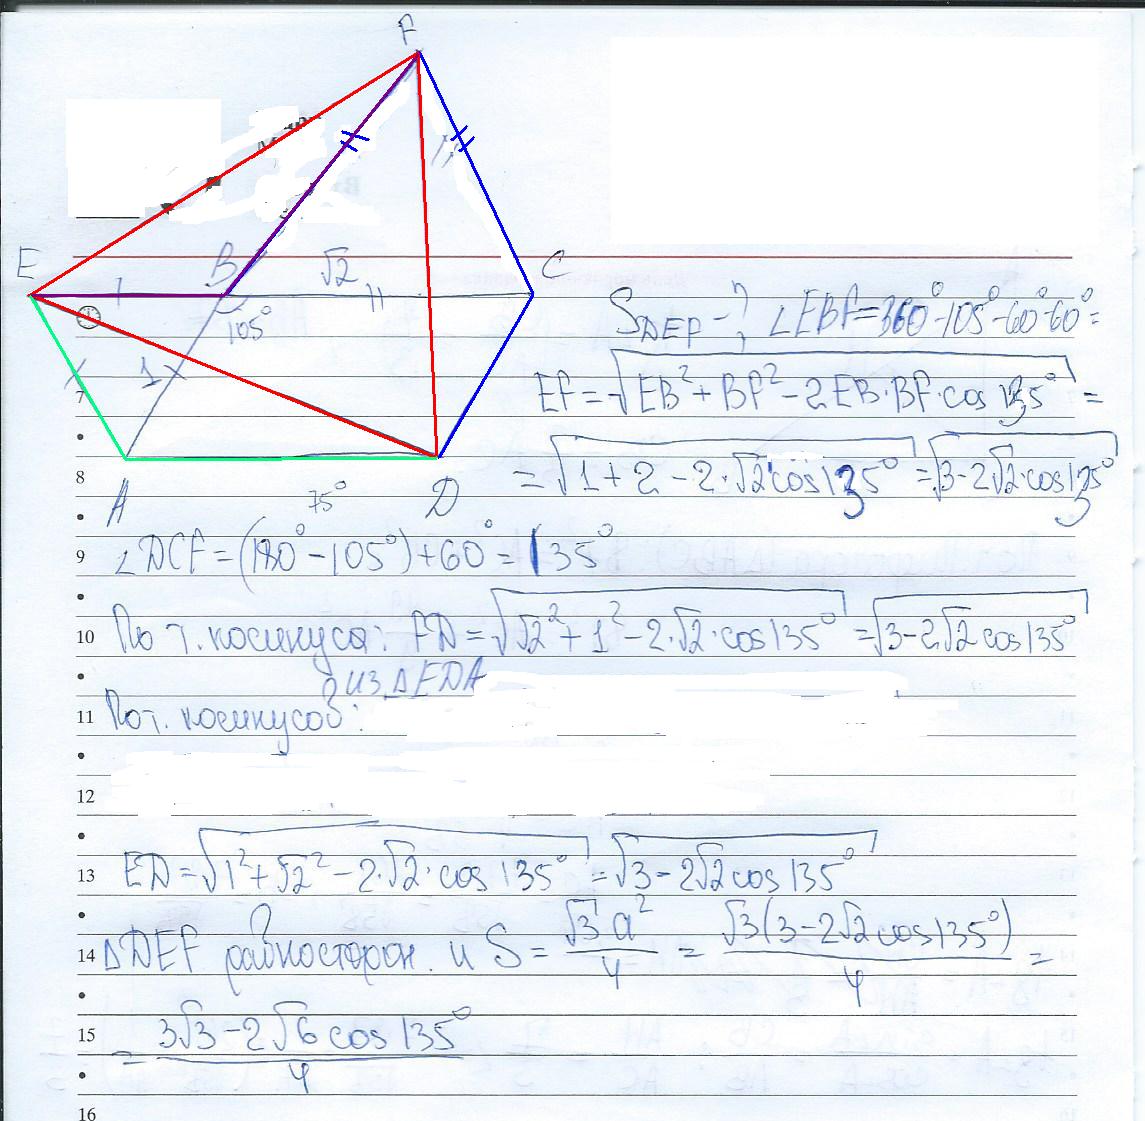 F
E
B
√2
C
105°
1
S DEF - ? ∠EBF=360°-105°-60°-60°=
7
EF=√EB²+BF²-2EB·BF·cos 135° =
8
=√1+2-2·√2 cos135° =√3-2√2·cos135°
A
75°
D
9
∠DCF=(180°-105°)+60°=135°
10
По т. косинуса: FD=√√2²+1²-2·√2·cos135° =√3-2√2cos135°
из ΔEDA
11
По т. косинусов:
12
13
ED=√1²+√2²-2·√2·cos135° =√3-2√2cos135°
14
ΔDEF равносторон. и S= √3a²/4 = √3(3-2√2cos135°)/4 =
15
= 3√3-2√6cos135°/4
16